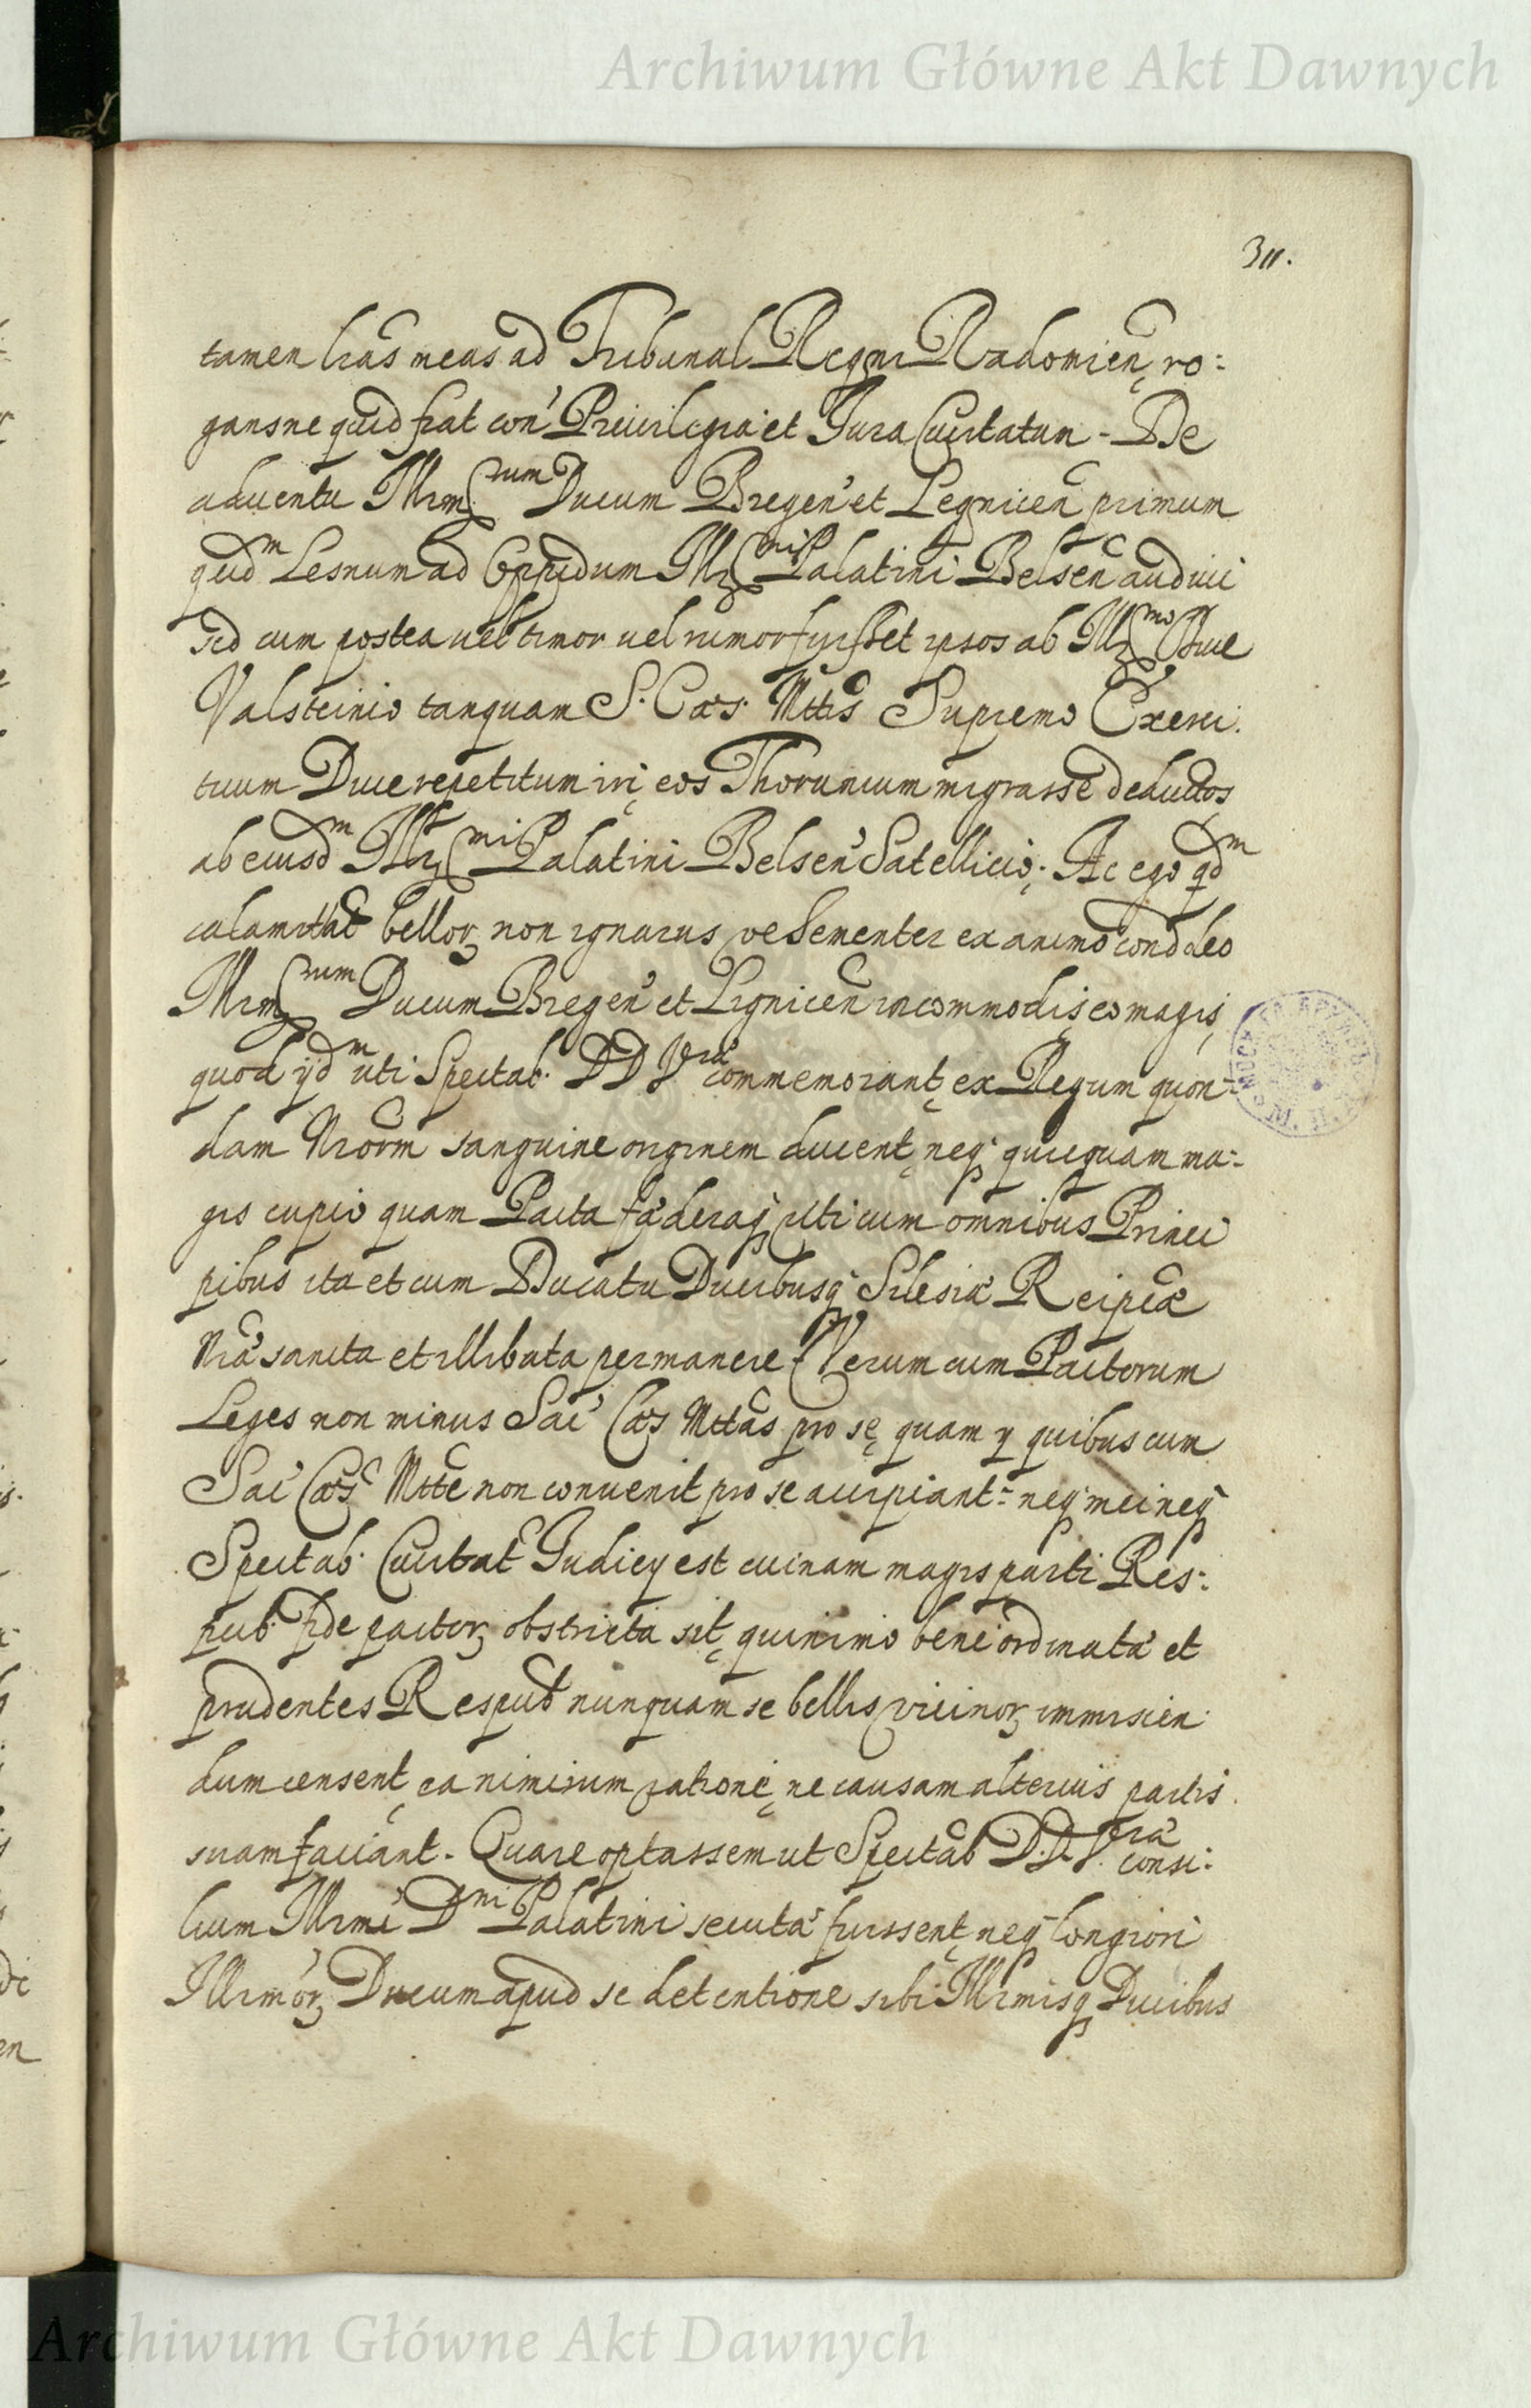 Archiwum Główne Akt Dawnych
311.
tamen lr̃as meas ad Tribunal Regni Radomień, ro:
gans ne quid fiat con' Privilegia et Jura Civitatum - De
adventu Illrm̃rum Ducum Bregeń et Legniceń primum
quidm Lesnum ad Oppidum Illmi Palatini Belseń audivi
sed cum postea vel timor vel rumor fuisset ipsos ab Illmo Duce
Valsteinio tanquam S. Cæs. Mttis Supremo Exerci:
tuum Duce repetitum iri, eos Thorunium migrasse deductos
ab eiusdm Illmi Palatini Belseń Satellicio; Ac ego qdm
calamitat bellorꝝ non ignarus vehementer ex animo condoleo
Illrm̃rum Ducum Bregeń et Ligniceń incommodis, eo magis,
quod ijdm uti Spectab. DD Vræ commemorant, ex Regum quon-
dam Nrorm̃ sanguine originem ducent, neq; quicquam ma-
gis cupio quam Pacta fæderaq; uti cum omnibus Princi
pibus ita et cum Ducatu Ducibusq; Silesiæ Reipcæ
Nræ sancta et illibata permanere. Verum cum Pactorum
Leges non minus Sac̃ Cæs Mttas pro se, quam y quibus cum
Sac̃ Cæs Mtte non convenit pro se accipiant: neq; mei neq;
Spectab. Civitat Judicÿ est cuinam magis parti Res:
pub. fide pactorꝝ obstricta sit, quinimo bene ordinatæ et
prudentes Respub nunquam se bellis vicinorꝝ immiscen:
dum censent, ea nimirum ratione, ne causam alterius partis
suam faciant. Quare optassem ut Spectab D.D. V.ræ consi:
lium Illrmi Dni Palatini secutæ fuissent, neq; longiori
Illrmorꝝ Ducum apud se detentione sibi Illrmisq; Ducibus
Archiwum Główne Akt Dawnych